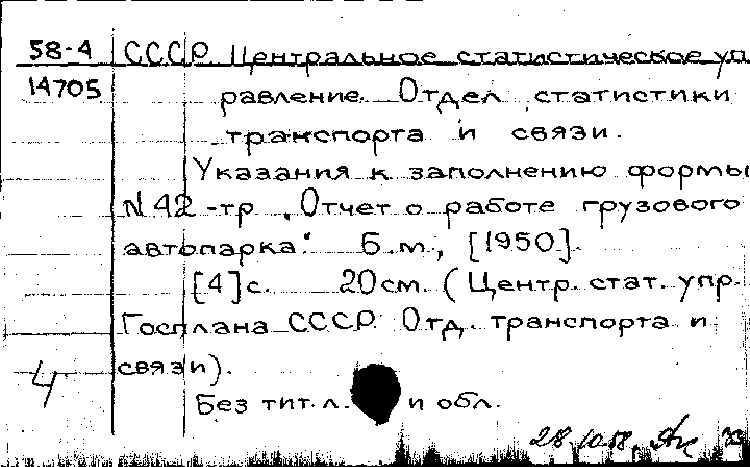 58-4 СССР. Центральное статистическое уп-
14705 равление. Отдел статистики
транспорта и связи.
Указания к заполнению формы
N 42-тр „Отчет о работе грузового
автопарка". Б.м., [1950].
[4]с. 20см. (Центр. стат. упр.
Госплана СССР. Отд. транспорта и
связи).
4
Без тит. л. и обл.
28.10.58.